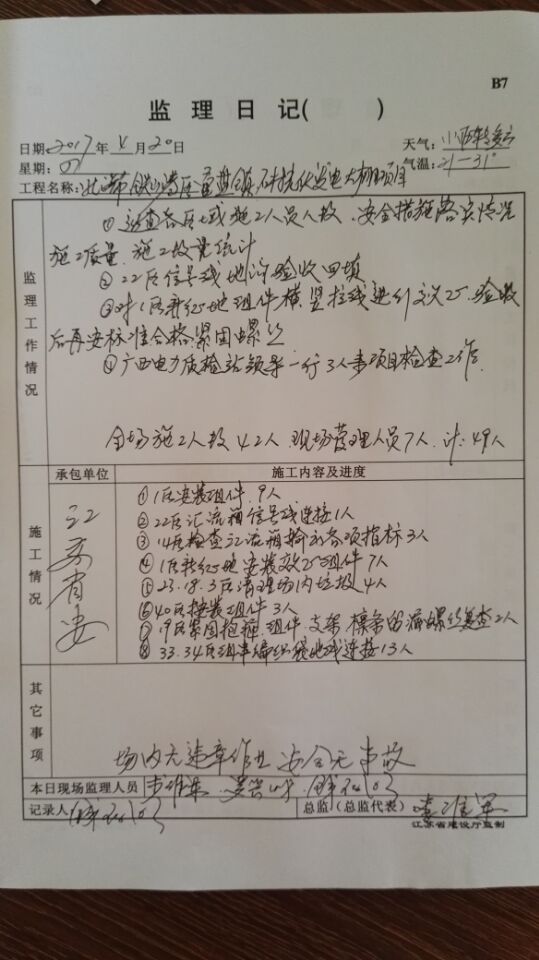 B7
监理日记( )
日期:2017年4月20日 天气:小雨转多云
星期:四 气温:21—31°
工程名称:北海市铁山港区 大棚项目
监理工作情况
①巡查各区域施工人员人数、安全措施落实情况
施工质量、施工数量统计
②22区信号线地沟验收回填
③对1区新征地组件横竖拉线进行 验收
后再安标准合格紧固螺丝
④广西电力质检站领导一行3人来项目检查工作
全场施工人数42人 现场管理人员7人 计:49人
承包单位 施工内容及进度
施工情况
江苏省安
①1区安装组件 9人
②22区汇流箱信号线连接1人
③14区检查汇流箱 各项指标3人
④1区新征地安装 组件7人
⑤23.18.3区清理场内垃圾4人
⑥40区接装组件3人
⑦19区紧固抱箍、组件、支架、檩条 漏螺丝复查2人
⑧33.34区组串编织袋地线连接13人
其它事项
场内无违章作业 安全无事故
本日现场监理人员
记录人 总监(总监代表)
江苏省建设厅监制